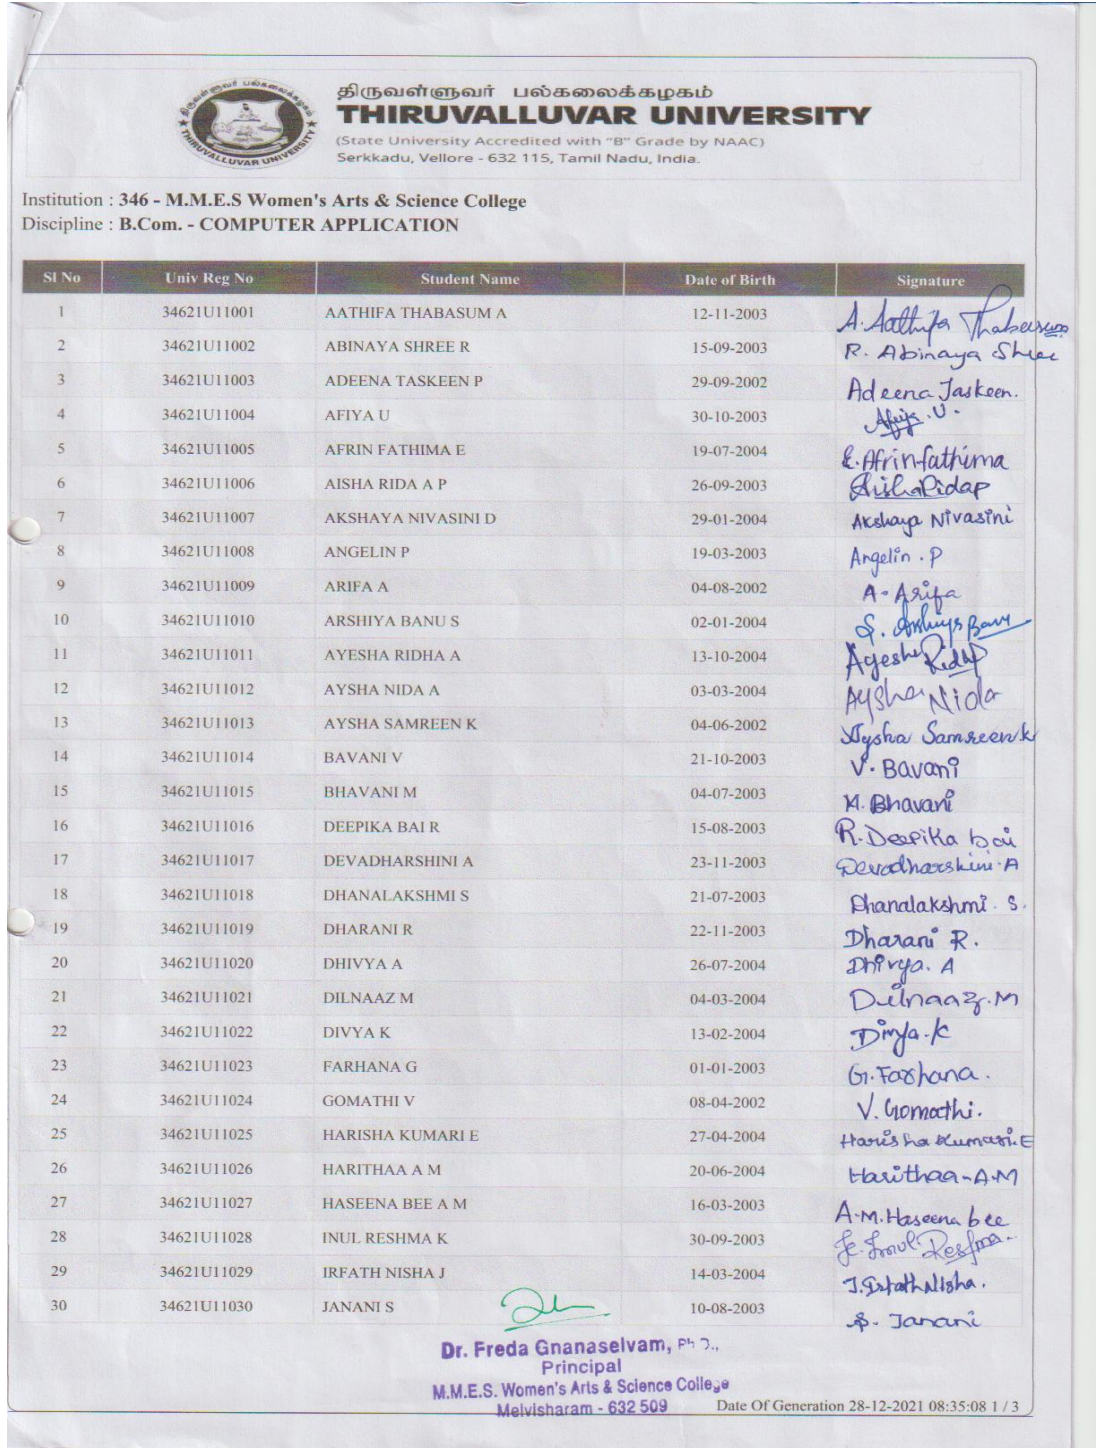 திருவள்ளுவர் பல்கலைக்கழகம்
THIRUVALLUVAR UNIVERSITY
திருவள்ளுவர் பல்கலைக்கழகம்
THIRUVALLUVAR UNIVERSITY
(State University Accredited with "B" Grade by NAAC)
Serkkadu, Vellore - 632 115, Tamil Nadu, India.
Institution : 346 - M.M.E.S Women's Arts & Science College
Discipline : B.Com. - COMPUTER APPLICATION
Sl No Univ Reg No Student Name Date of Birth Signature
1 34621U11001 AATHIFA THABASUM A 12-11-2003 A. Aathifa Thabasum
2 34621U11002 ABINAYA SHREE R 15-09-2003 R. Abinaya Shree
3 34621U11003 ADEENA TASKEEN P 29-09-2002 Adeena Taskeen.
4 34621U11004 AFIYA U 30-10-2003 Afiya.U.
5 34621U11005 AFRIN FATHIMA E 19-07-2004 E.Afrin fathima
6 34621U11006 AISHA RIDA A P 26-09-2003 AishaRidaAP
7 34621U11007 AKSHAYA NIVASINI D 29-01-2004 Akshaya Nivasini
8 34621U11008 ANGELIN P 19-03-2003 Angelin.P
9 34621U11009 ARIFA A 04-08-2002 A. Arifa
10 34621U11010 ARSHIYA BANU S 02-01-2004 S. Arshiya Banu
11 34621U11011 AYESHA RIDHA A 13-10-2004 Ayesha Ridha
12 34621U11012 AYSHA NIDA A 03-03-2004 Aysha Nida
13 34621U11013 AYSHA SAMREEN K 04-06-2002 Aysha Samreen k
14 34621U11014 BAVANI V 21-10-2003 V. Bavani
15 34621U11015 BHAVANI M 04-07-2003 M. Bhavani
16 34621U11016 DEEPIKA BAI R 15-08-2003 R. Deepika bai
17 34621U11017 DEVADHARSHINI A 23-11-2003 Devadharshini.A
18 34621U11018 DHANALAKSHMI S 21-07-2003 Dhanalakshmi. S.
19 34621U11019 DHARANI R 22-11-2003 Dharani R.
20 34621U11020 DHIVYA A 26-07-2004 Dhivya. A
21 34621U11021 DILNAAZ M 04-03-2004 Dilnaaz.M
22 34621U11022 DIVYA K 13-02-2004 Divya.K
23 34621U11023 FARHANA G 01-01-2003 G.Farhana.
24 34621U11024 GOMATHI V 08-04-2002 V. Gomathi.
25 34621U11025 HARISHA KUMARI E 27-04-2004 Harisha Kumari.E
26 34621U11026 HARITHAA A M 20-06-2004 Harithaa-A.M
27 34621U11027 HASEENA BEE A M 16-03-2003 A.M.Haseena bee
28 34621U11028 INUL RESHMA K 30-09-2003 K. Inul Reshma.
29 34621U11029 IRFATH NISHA J 14-03-2004 J.Irfath Nisha.
30 34621U11030 JANANI S 10-08-2003 S. Janani
Dr. Freda Gnanaselvam, Ph D.,
Principal
M.M.E.S. Women's Arts & Science College
Melvisharam - 632 509
Date Of Generation 28-12-2021 08:35:08 1 / 3